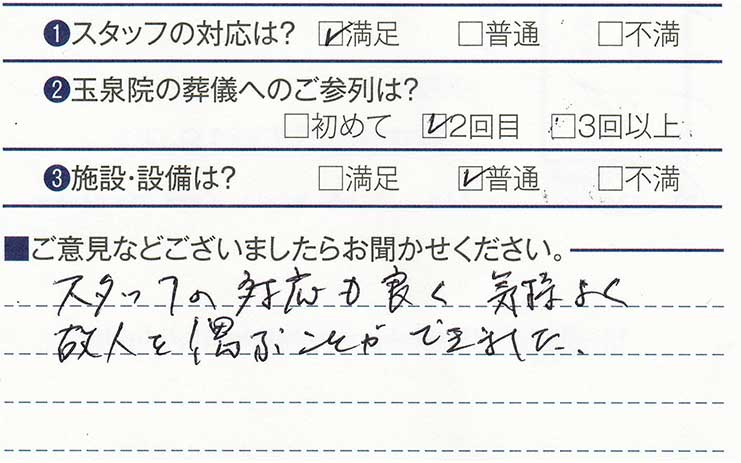 ❶スタッフの対応は? ☑満足 □普通 □不満
❷玉泉院の葬儀へのご参列は?
□初めて ☑2回目 □3回以上
❸施設・設備は? □満足 ☑普通 □不満
■ご意見などございましたらお聞かせください。
スタッフの対応も良く 気持よく
故人を偲ぶことができました。